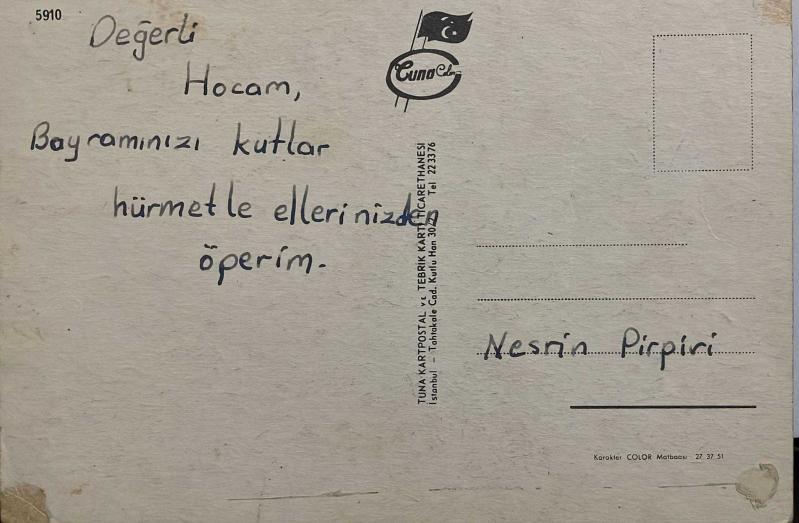 5910
Değerli
Hocam,
Bayramınızı kutlar
hürmetle ellerinizden
öperim.
Tuna Color
TUNA KARTPOSTAL ve TEBRİK KARTI TİCARETHANESİ
İstanbul – Tahtakale Cad. Kutlu Han 30/ Tel 223376
Nesrin Pirpiri
Karakter COLOR Matbaası 27 37 51